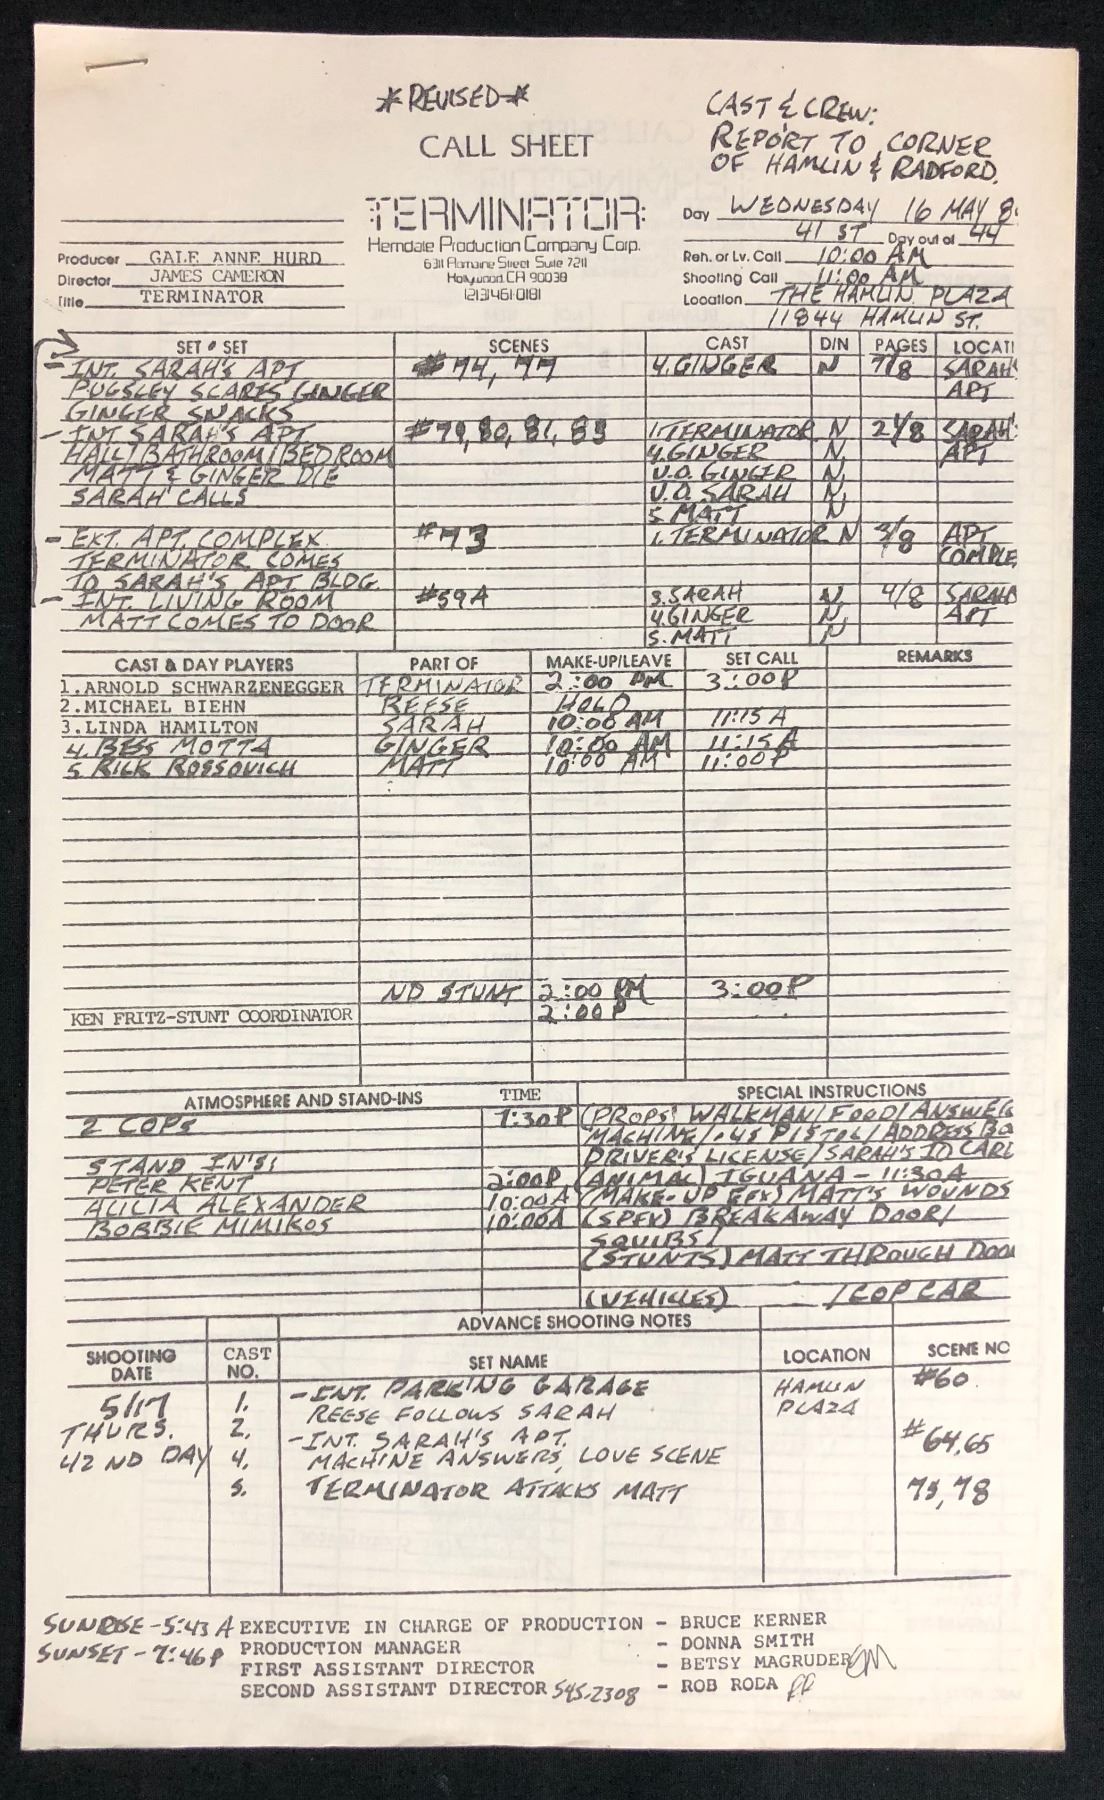 *REVISED*
CALL SHEET
CAST & CREW:
REPORT TO CORNER
OF HAMLIN & RADFORD.
TERMINATOR
Hemdale Production Company Corp.
6311 Romaine Street Suite 7211
Hollywood. CA 90038
(213)461-0181
Producer GALE ANNE HURD
Director JAMES CAMERON
Title TERMINATOR
Day WEDNESDAY 16 MAY 8
41 ST Day out of 44
Reh. or Lv. Call 10:00 AM
Shooting Call 11:00 AM
Location THE HAMLIN PLAZA
11844 HAMLIN ST.
SET • SET SCENES CAST D/N PAGES LOCATI
- INT. SARAH'S APT #74, 77 4. GINGER N 7/8 SARAH'
PUGSLEY SCARES GINGER APT
GINGER SNACKS
- INT. SARAH'S APT #79, 80, 81, 83 1. TERMINATOR N 2 1/8 SARAH'
HALL/BATHROOM/BEDROOM 4. GINGER N APT
MATT & GINGER DIE V.O. GINGER N
SARAH CALLS V.O. SARAH N
5. MATT N
- EXT. APT. COMPLEX #73 1. TERMINATOR N 3/8 APT
TERMINATOR COMES COMPLE
TO SARAH'S APT BLDG.
- INT. LIVING ROOM #59A 3. SARAH N 4/8 SARAH
MATT COMES TO DOOR 4. GINGER N APT
5. MATT N
CAST & DAY PLAYERS PART OF MAKE-UP/LEAVE SET CALL REMARKS
1. ARNOLD SCHWARZENEGGER TERMINATOR 2:00 PM 3:00P
2. MICHAEL BIEHN REESE HOLD
3. LINDA HAMILTON SARAH 10:00 AM 11:15 A
4. BESS MOTTA GINGER 10:00 AM 11:15 A
5 RICK ROSSOVICH MATT 10:00 AM 11:00P
ND STUNT 2:00 PM 3:00P
KEN FRITZ-STUNT COORDINATOR 2:00P
ATMOSPHERE AND STAND-INS TIME SPECIAL INSTRUCTIONS
2 COPS 7:30P (PROPS) WALKMAN/FOOD/ANSWER
MACHINE/.45 PISTOL/ADDRESS BO
STAND IN'S: DRIVER'S LICENSE/SARAH'S ID CARD
PETER KENT 2:00P (ANIMAL) IGUANA - 11:30A
ALICIA ALEXANDER 10:00A (MAKE-UP EFX) MATT'S WOUNDS
BOBBIE MIMIKOS 10:00A (SPFX) BREAKAWAY DOOR/
SQUIBS/
(STUNTS) MATT THROUGH DOO
(VEHICLES) 1 COP CAR
ADVANCE SHOOTING NOTES
SHOOTING DATE CAST NO. SET NAME LOCATION SCENE NO
5/17 1. - INT. PARKING GARAGE HAMLIN PLAZA #60
THURS. 2. REESE FOLLOWS SARAH
42 ND DAY 4. - INT. SARAH'S APT. #64,65
MACHINE ANSWERS, LOVE SCENE
5. TERMINATOR ATTACKS MATT 75, 78
SUNRISE - 5:43 A EXECUTIVE IN CHARGE OF PRODUCTION - BRUCE KERNER
SUNSET - 7:46P PRODUCTION MANAGER - DONNA SMITH
FIRST ASSISTANT DIRECTOR - BETSY MAGRUDER
SECOND ASSISTANT DIRECTOR 545-2308 - ROB RODA